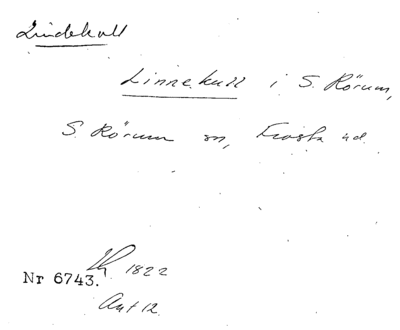 Lindekull
Linnekull i S. Rörum,
S. Rörum sn, Frosta hd.
Lh. 1822
Nr 6743.
Ant 12.